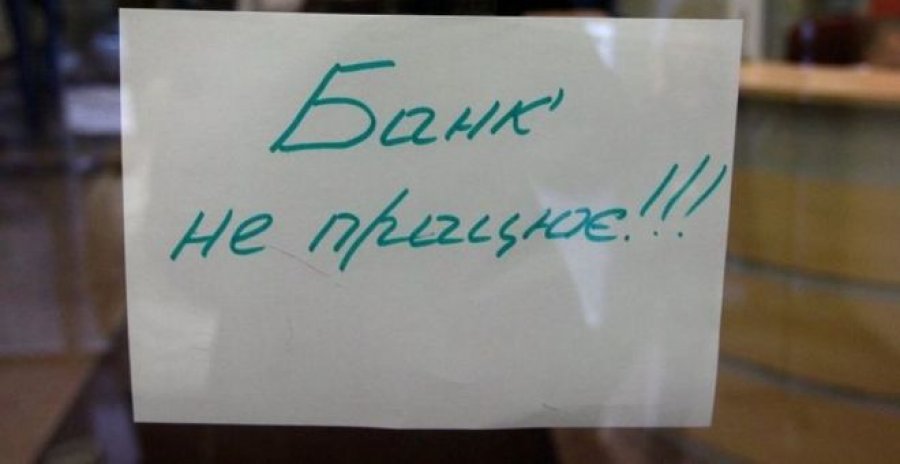 Банк
не працює!!!